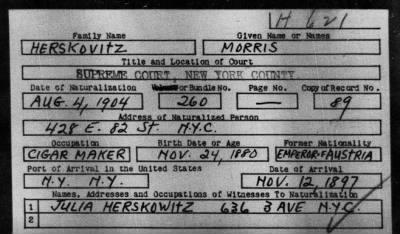 H 621
Family Name Given Name or Names
HERSKOVITZ MORRIS
Title and Location of Court
SUPREME COURT, NEW YORK COUNTY
Date of Naturalization Volume or Bundle No. Page No. Copy of Record No.
AUG. 4, 1904 260 — 89
Address of Naturalized Person
428 E. 82 St. N.Y.C.
Occupation Birth Date or Age Former Nationality
CIGAR MAKER NOV. 24, 1880 EMPEROR OF AUSTRIA
Port of Arrival in the United States Date of Arrival
N.Y. N.Y. NOV. 12, 1897
Names, Addresses and Occupations of Witnesses To Naturalization
1 JULIA HERSKOWITZ 636 3 AVE N.Y.C.
2